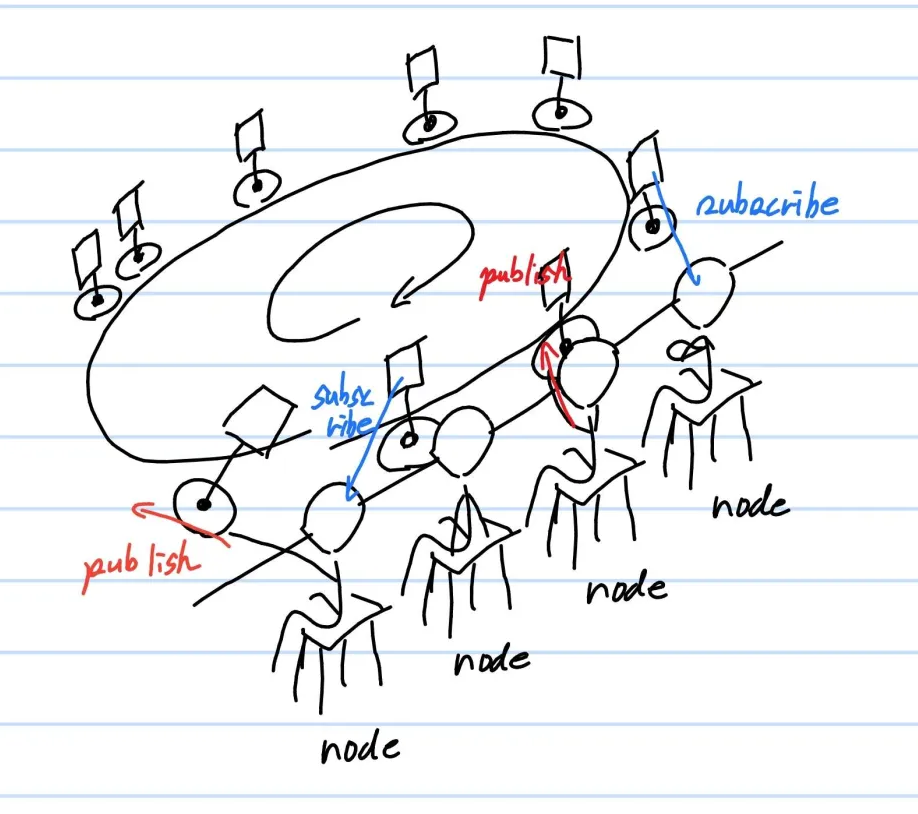 subscribe
publish
subsc
ribe
publish
node
node
node
node